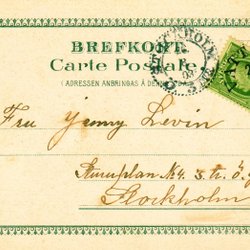 BREFKORT
Carte Postale
(ADRESSEN ANBRINGAS Å DE
Fru Jenny Levin
Stureplan No 4. 3. tr. ö. g.
Stockholm